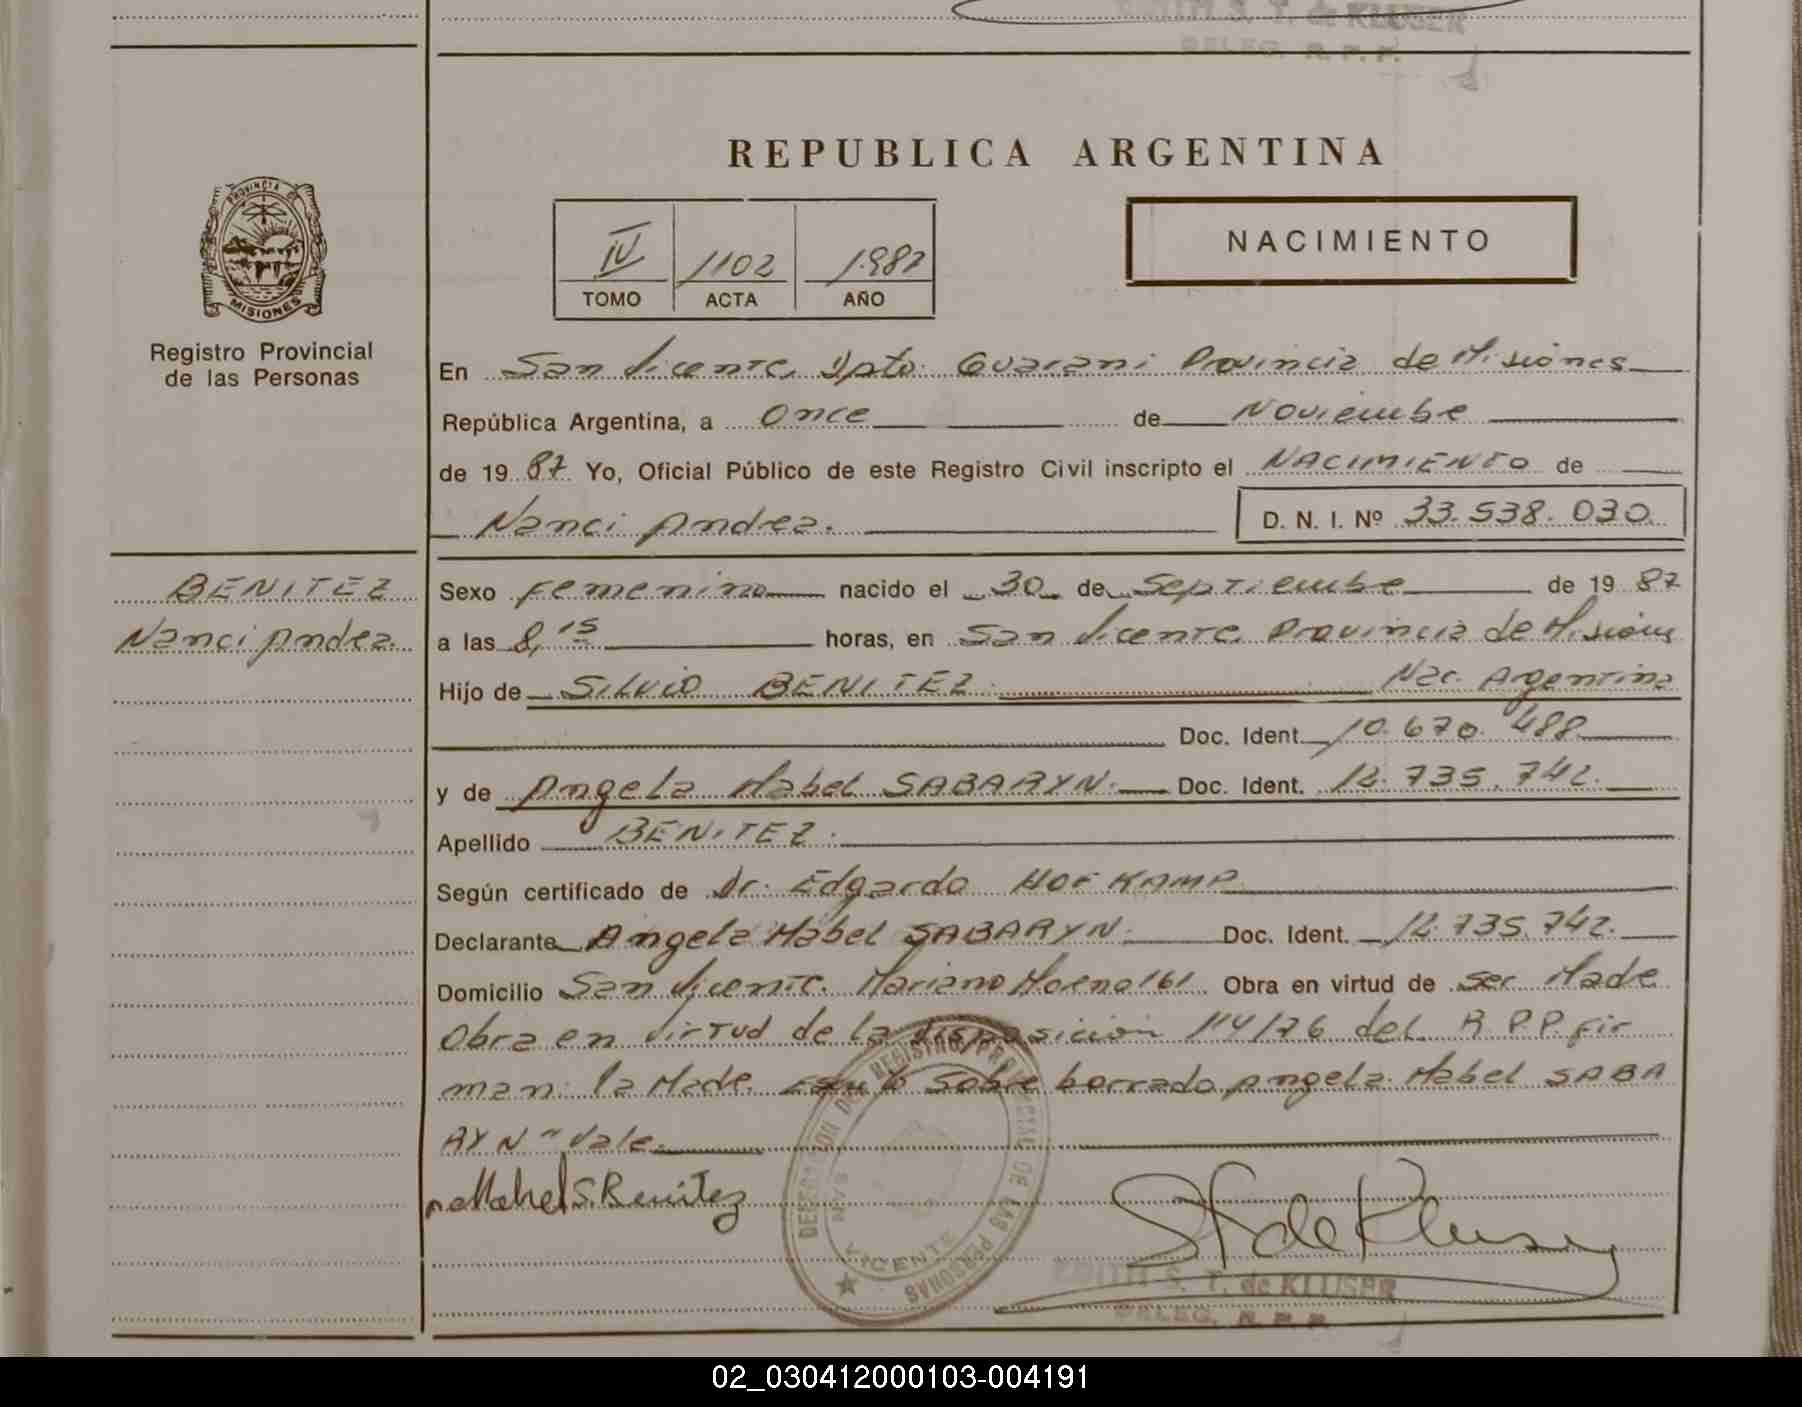 EDITH S. T. de KLUSER
DELEG. R. P. P.
REPUBLICA ARGENTINA
PROVINCIA DE
MISIONES
Registro Provincial
de las Personas
IV 1102 1987
TOMO ACTA AÑO
NACIMIENTO
En San Vicente, Dpto. Guarani Provincia de Misiones
República Argentina, a Once de Noviembre
de 1987 Yo, Oficial Público de este Registro Civil inscripto el NACIMIENTO de
Nanci Andrea. D. N. I. Nº 33.538.030.
BENITEZ
Nanci Andrea.
Sexo femenino nacido el 30 de Septiembre de 1987
a las 8,15 horas, en San Vicente, Provincia de Misiones
Hijo de SILVIO BENITEZ. Nac. Argentina
Doc. Ident. 10.670.488
y de Angela Mabel SABARYN. Doc. Ident. 12.735.742.
Apellido BENITEZ.
Según certificado de Dr. Edgardo HOFKAMP
Declarante Angela Mabel SABARYN. Doc. Ident. 12.735.742.
Domicilio San Vicente. Mariano Moreno 161. Obra en virtud de ser Made
Obra en virtud de la disposicion 114/76 del R.P.P. fir
man: la Made. Escrito sobre borrado Angela Mabel SABA
RYN" Vale.
Mabel S. Benitez
DELEGACION DEL REGISTRO PROVINCIAL DE LAS PERSONAS
SAN VICENTE
S T de Kluser
EDITH S. T. de KLUSER
DELEG. R. P. P.
02_030412000103-004191